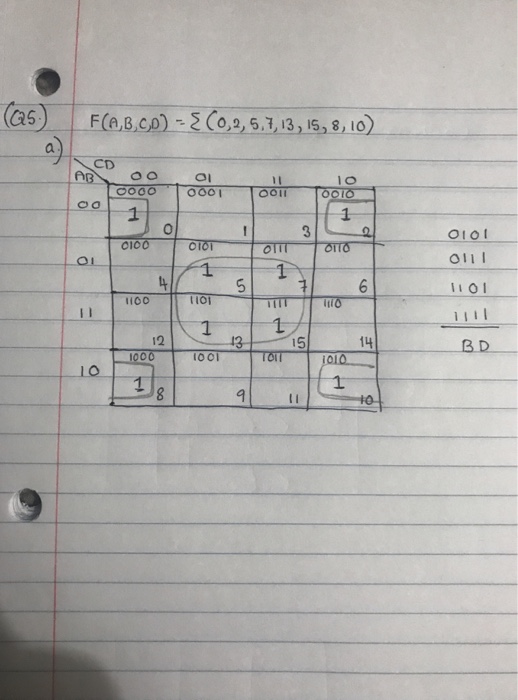 (Q5.) F(A,B,C,D) = Σ (0,2,5,7,13,15,8,10)
a)
CD
AB 00 01 11 10
00 0000 0001 0011 0010
1 0 1 3 1 2
01 0100 0101 0111 0110
4 1 5 1 7 6
11 1100 1101 1111 1110
12 1 13 1 15 14
10 1000 1001 1011 1010
1 8 9 11 1 10
0101
0111
1101
1111
BD